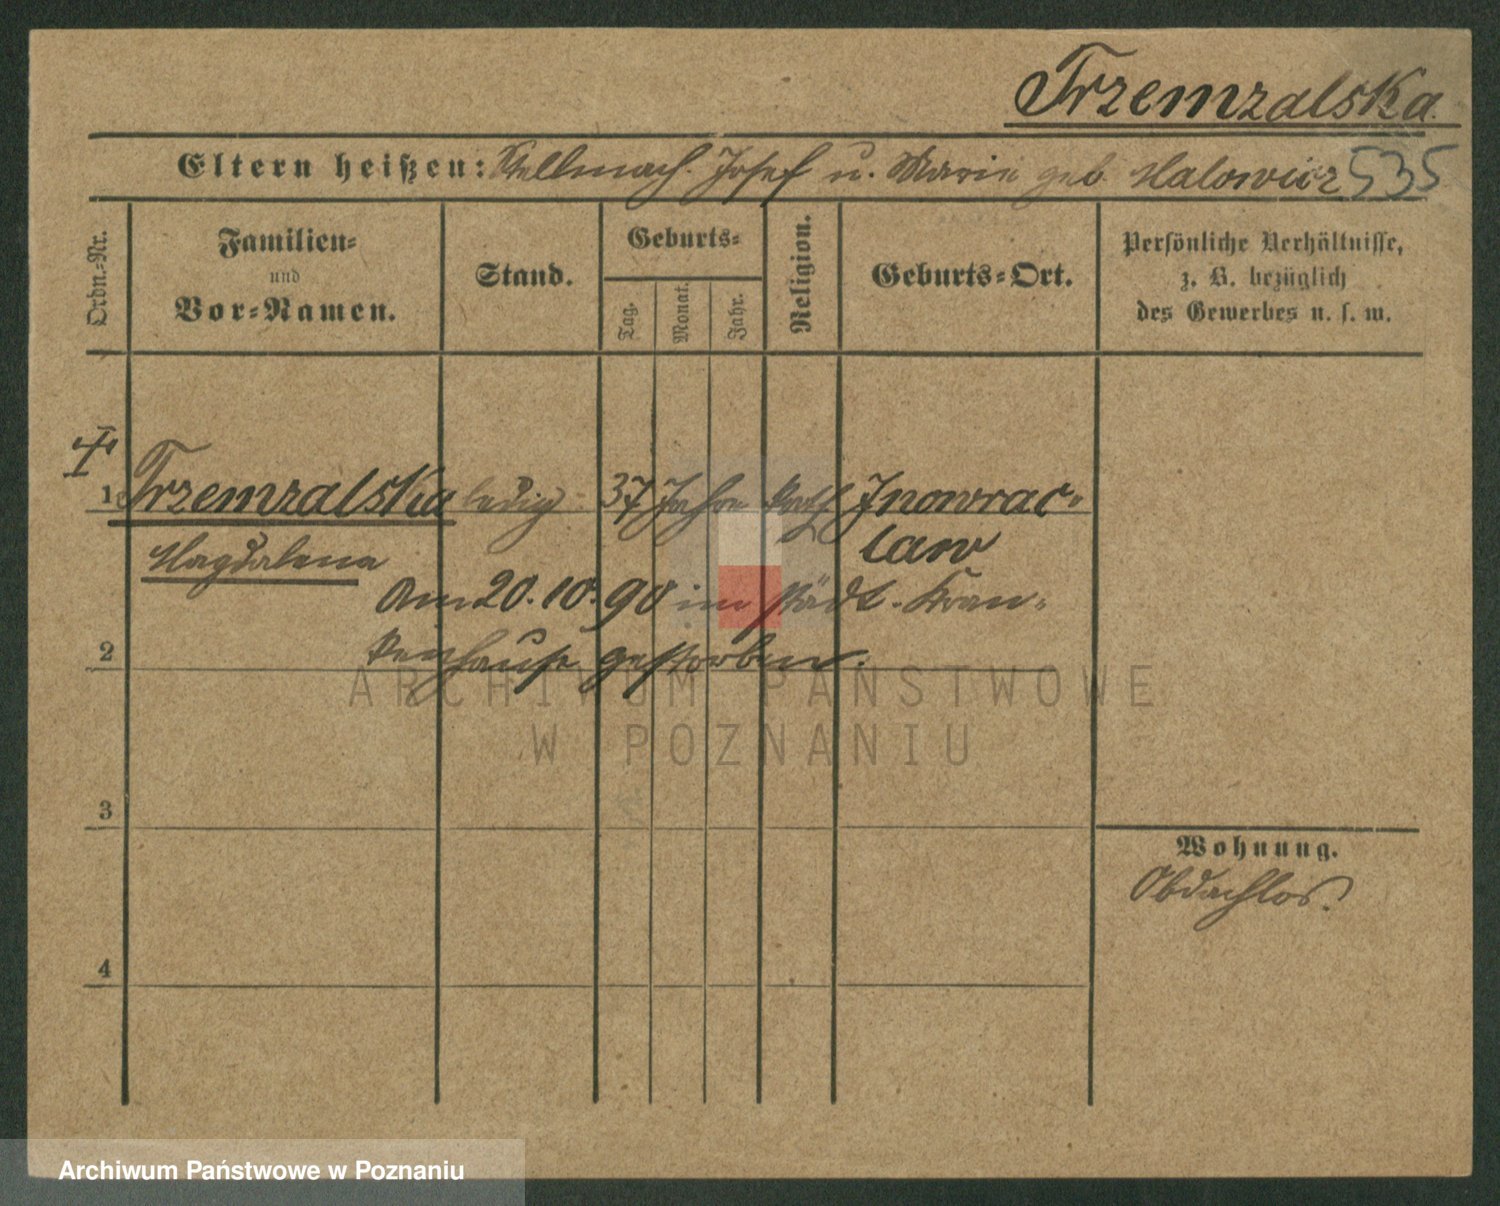 Trzemzalska
Eltern heißen: Stellmach. Josef u. Marie geb. Malowicz 535
Ordn.-Nr.
Familien-
und
Vor-Namen.
Stand.
Geburts-
Tag.
Monat.
Jahr.
Religion.
Geburts-Ort.
Persönliche Verhältnisse,
z. B. bezüglich
des Gewerbes u. s. w.
1 Trzemzalska ledig 37 Jahre kath Inowrac-
law
Magdalena
Am 20.10.90 im städt. Kran-
kenhause gestorben.
2
3
4
Wohnung.
Obdachlos.
ARCHIWUM PAŃSTWOWE
W POZNANIU
Archiwum Państwowe w Poznaniu